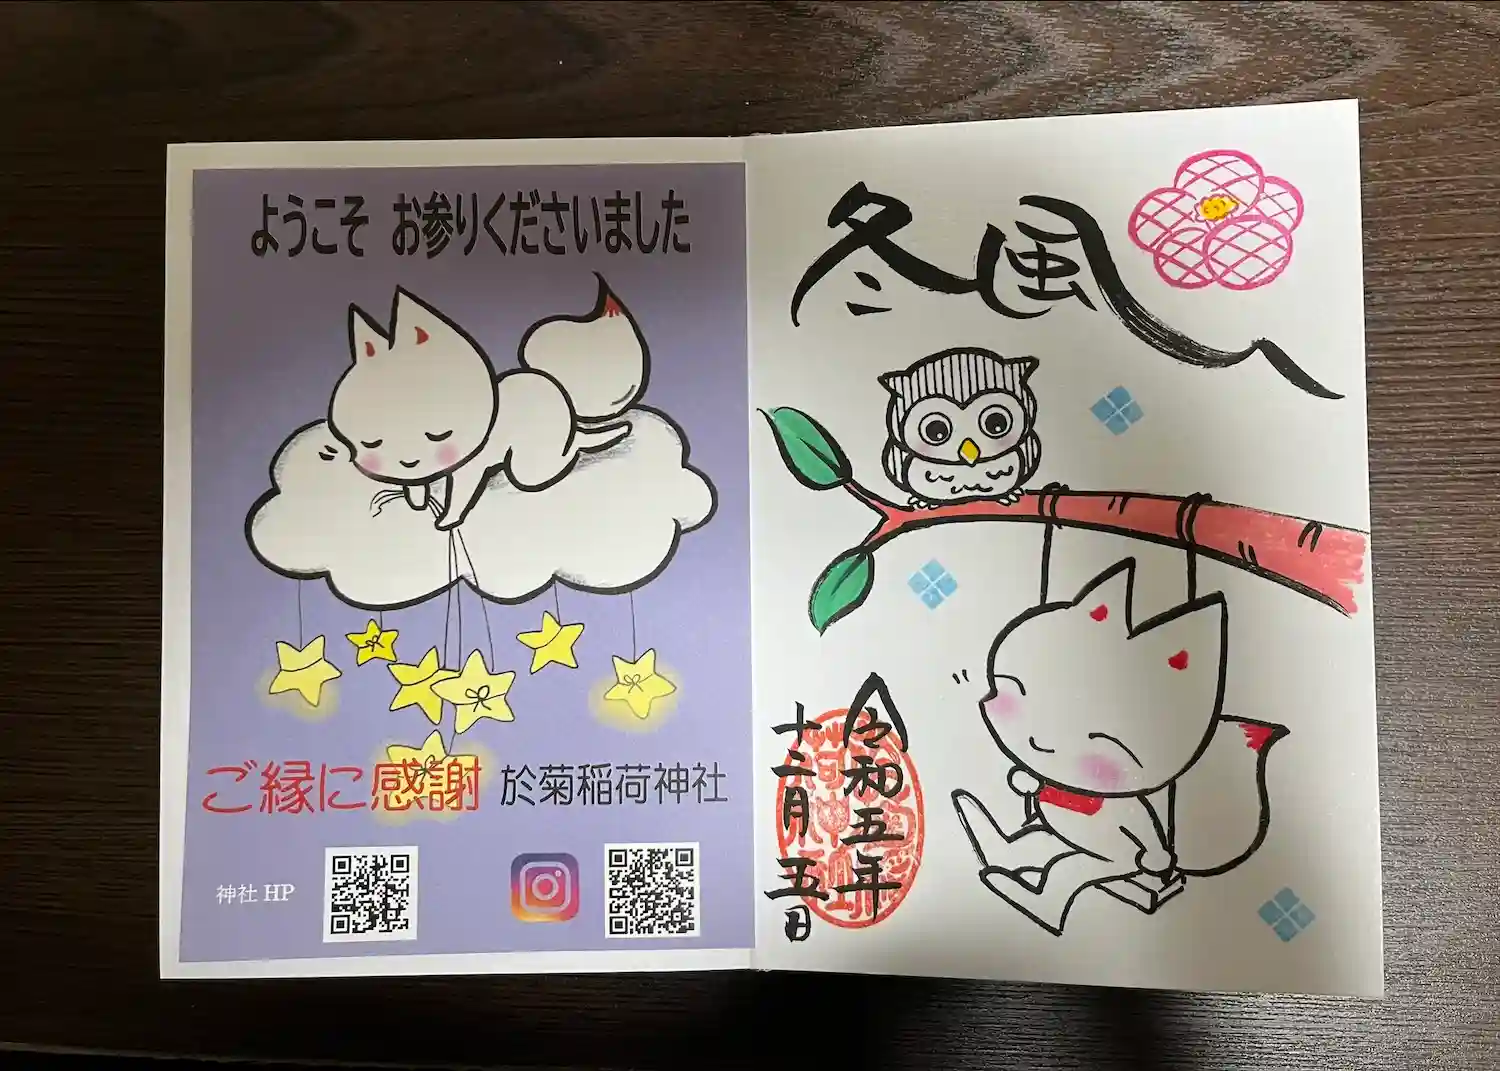 ようこそ お参りくださいました
ご縁に感謝 於菊稲荷神社
神社 HP
冬風
令和五年
十二月五日